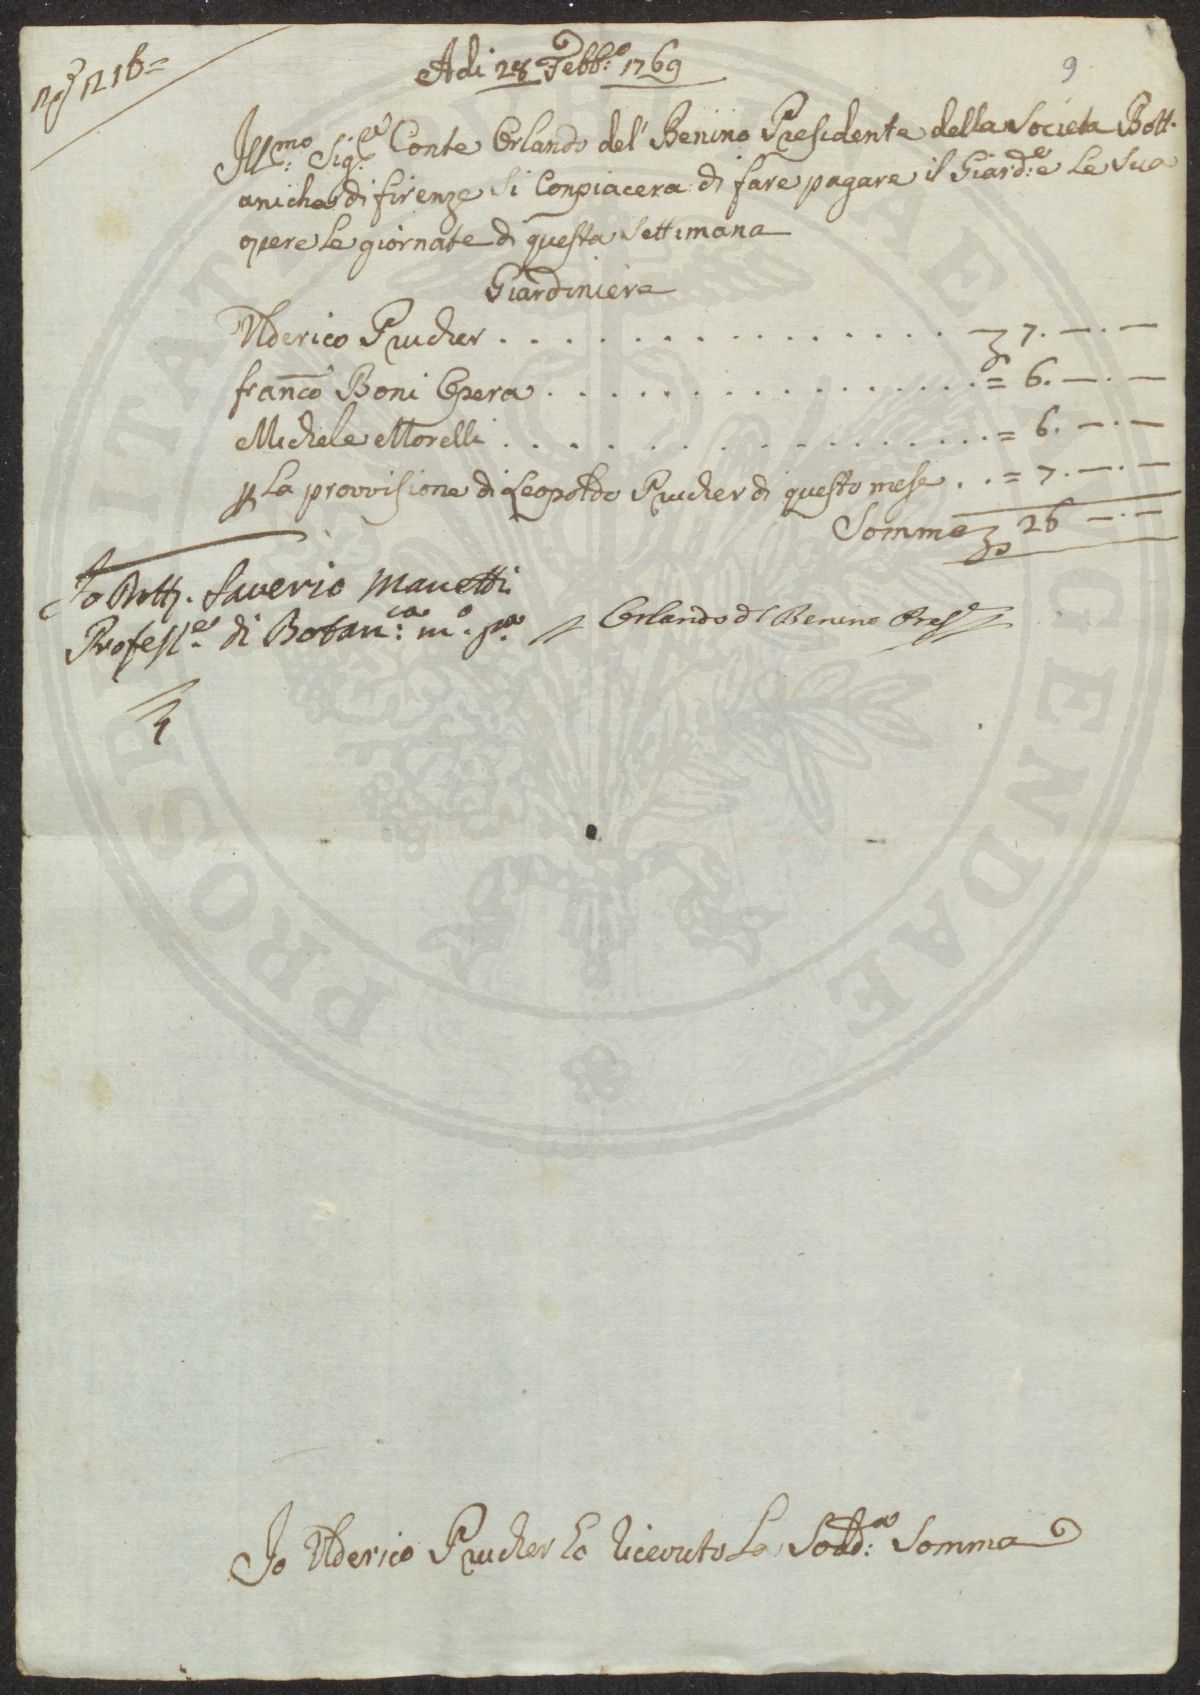 Adi 28 Febb:o 1769
9
Ill:mo Sig:re Conte Orlando del' Benino Presidente della Societa Bott-
aniche di firenze Si Conpiacera di fare pagare il Giard:e e Le Sua
opere Le giornate di questa Settimana
Giardiniere
Ulderico Prucher . . . . . . . . . . . . . . 7. —. —
franco Boni Opera . . . . . . . . . . . . . . = 6. —. —
Michele Morelli . . . . . . . . . . . . . . = 6. —. —
p La provvisione di Leopoldo Prucher di questo mese . . = 7. —. —
Somma 26 —. —
Io Dott. Saverio Manetti
Profess:re di Botan:ca m:o p:a
Orlando d'l Benino Pres:e
Io Ulderico Prucher ho ricevuto La Sodd:a Somma
PROSPERITATI PUBLICAE AUGENDAE